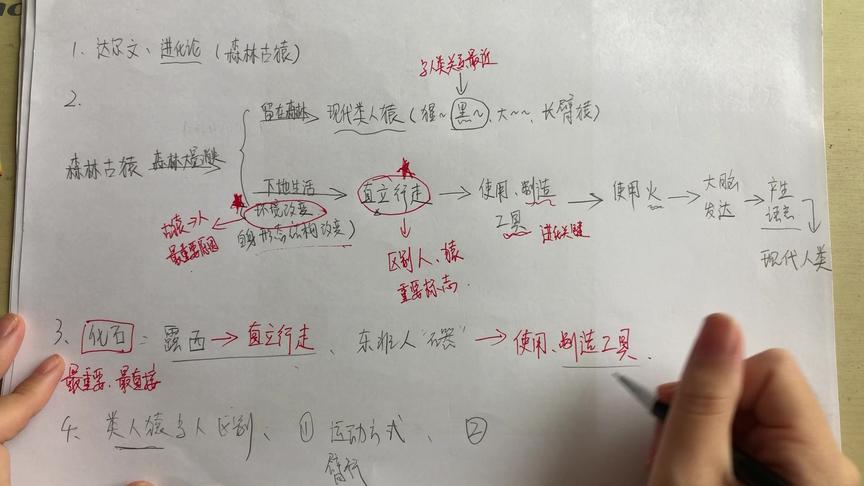 1、达尔文、进化论（森林古猿）
与人类关系最近
2.
留在森林 现代类人猿（猩~ 黑~、大~~、长臂猿）
森林古猿 森林大量消失
下地生活 直立行走 → 使用、制造工具 → 使用火 → 大脑发达 → 产生语言
环境改变
进化关键
（自身形态结构改变）
古猿→人
最重要原因
区别人、猿
重要标志.
现代人类
3、化石：露西 → 直立行走、东非人“石器” → 使用、制造工具.
最重要、最直接
4. 类人猿与人区别、① 运动方式、②
臂行